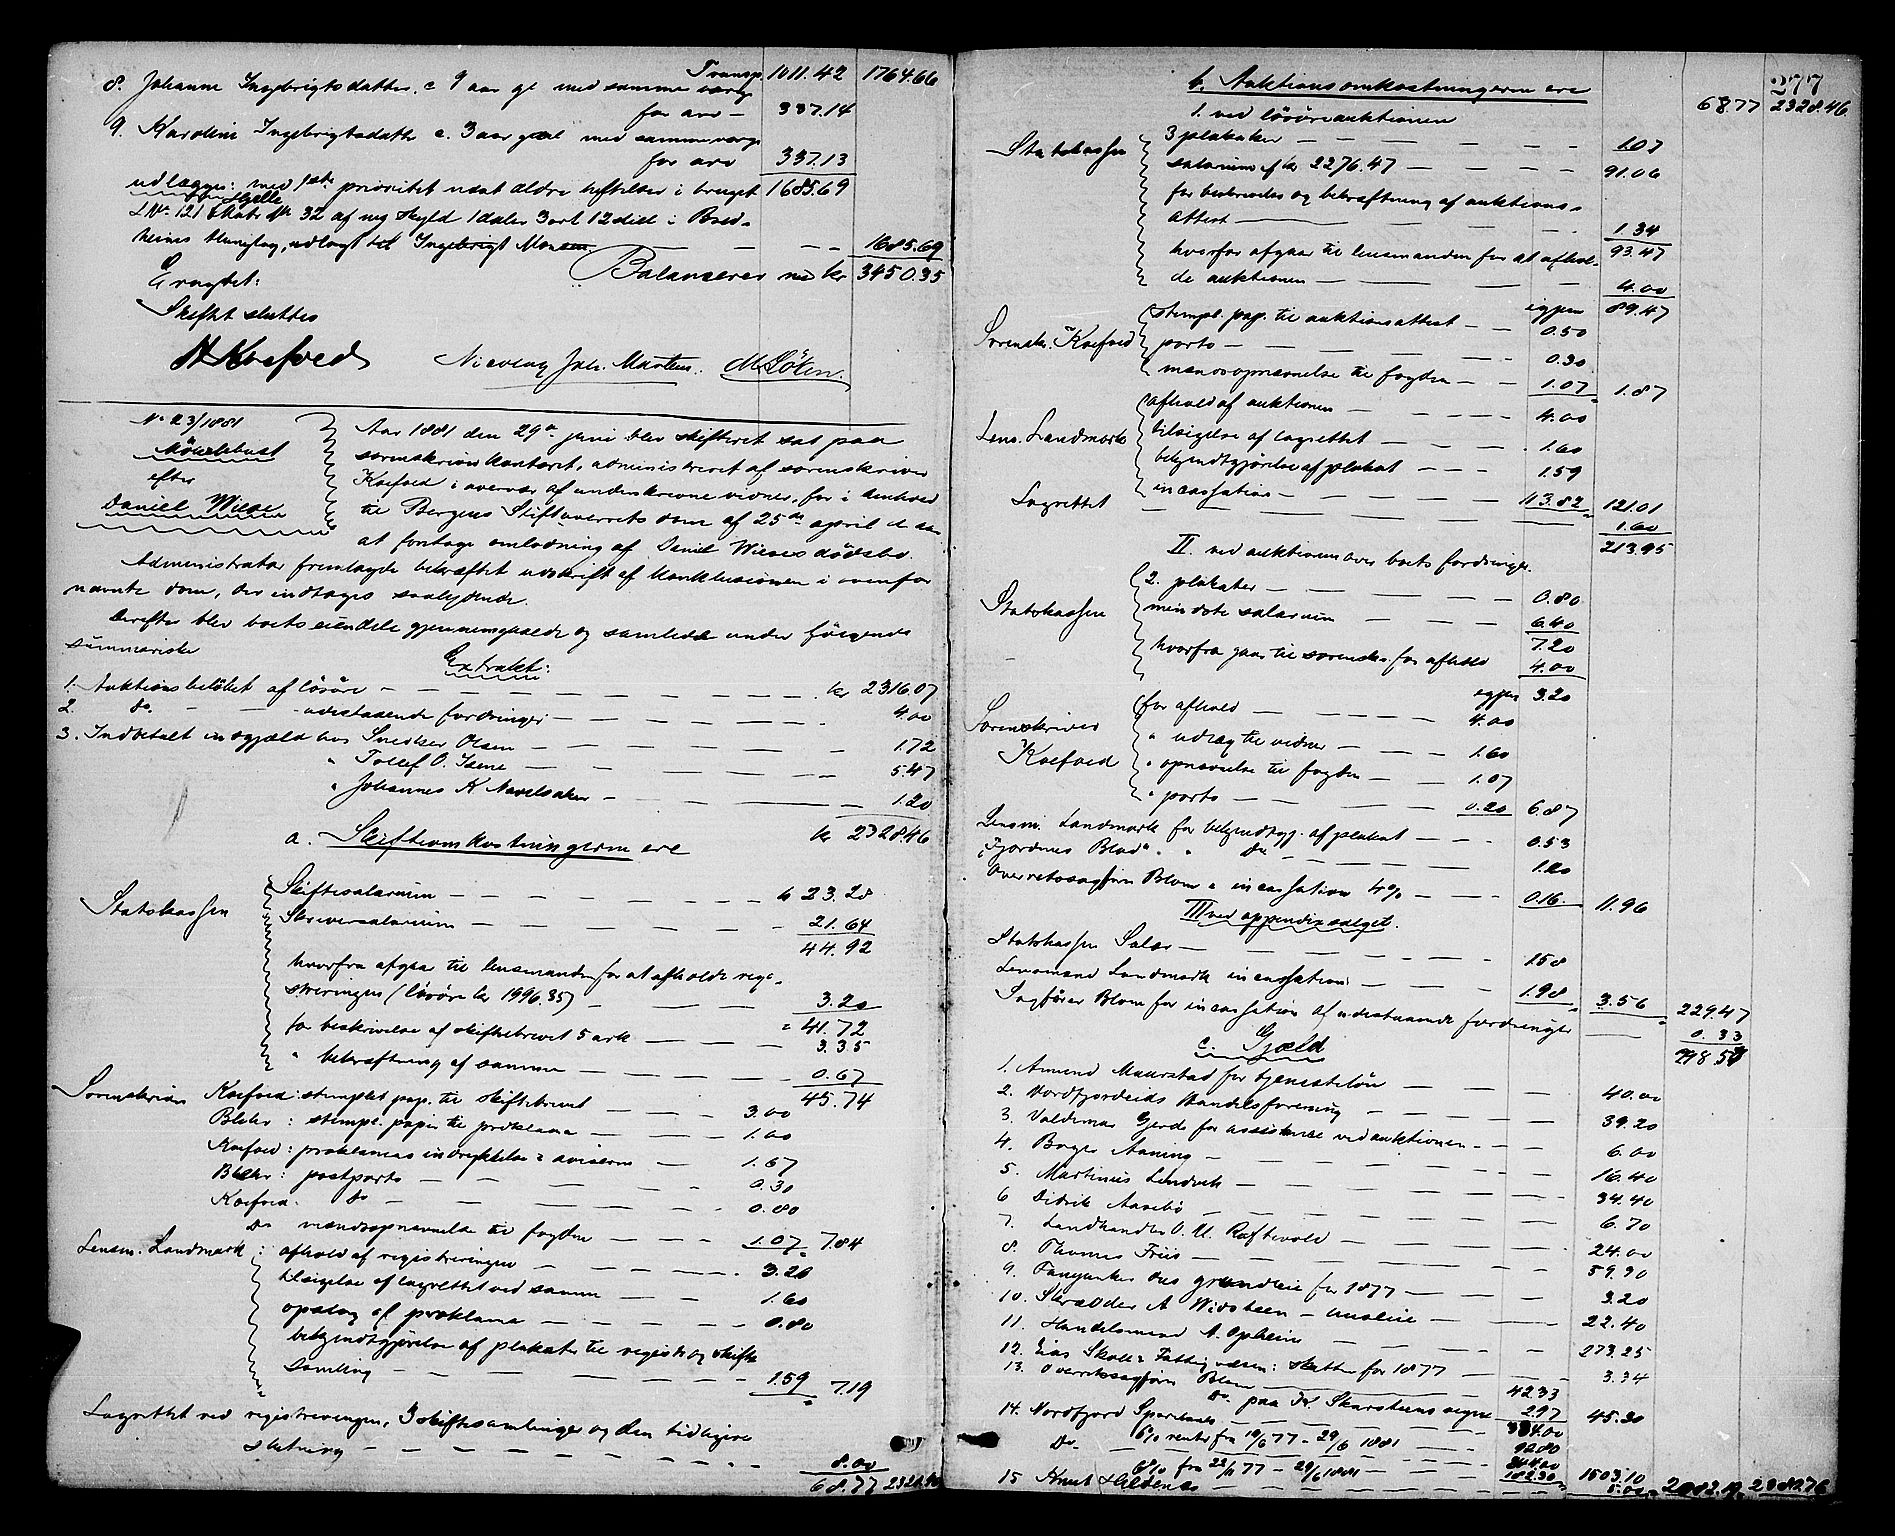 Transp. 1011.42 1764.66
8. Johanne Ingebrigtsdatter, c 9 aar gl med samme værge
for arv — 337.14
9. Karoline Ingebrigtsdatter c. 3 aar gml med samme værge
for arv 337.13
udlægges: med 1ste prioritet næst ældre heftelser i bruget 1685.69
Hjelle
LNo 121 Matr No 32 af ny skyld 1 daler 3 ort 12 skil i Bred-
heims thinglag, udlagt til Ingebrigt Monsen — — — 1685.69
Balancerer med kr 3450.35
Eragtet:
Skiftet sluttes
H Koefoed Nicolay Joh. Martens. M Löken.
No 23/1881
Möcklebust
efter
Daniel Wiese
Aar 1881 den 29de juni blev skifteret sat paa
sorenskriverkontoret, administreret af sorenskriver
Koefoed i overvær af underskrevne vidner, for i henhold
til Bergens Stiftsoverrets dom af 25de april d. aa
at foretage omlodning af Daniel Wieses dødsbo.
Administrator fremlagde bekræftet udskrift af konklusionen i ovenfor
nævnte dom, der indtages saalydende.
Derefter blev boets eiendele gjennemgaaede og samlede under følgende
summariske
Extrakt:
1. Auktionsbeløbet af lösöre — — — kr 2316.07
2. Do. — udestaaende fordringer — — — 4.00
3. Indbetalt indgjæld hos Snedker Olsen — — — 1.72
" Tollef O. Isene — — — 5.47
" Johannes K Navelsaker — — — 1.20
kr 2328.46
a. Skifteomkostningerne ere
Statskassen
Skiftesalarium — — — kr 23.28
Skriversalarium — — — 21.64
44.92
hvorfra afgaar til lensmanden for at afholde regi-
streringen (lösöre kr 1996.35) — — 3.20
= 41.72
for beskrivelse af skiftebrevet 5 ark — — 3.35
" bekræftning af samme — — — 0.67
45.74
Sorenskriver Koefoed: stemplet pap. til skiftebrevet — — 3.00
Blehr: stempl. papir til proklama — — 1.00
Koefoed: proklamas indrykkelse i aviserne — 1.67
Blehr: postporto — — — 0.30
Koefoed: Do — — — 0.80
Do mandsopnævnelse til fogden — — 1.07 7.84
Lensm. Landmark: afhold af registreringen — — 3.20
tilsigelse af lagrettet ved samme — — 1.60
opslag af proklama — — — 0.80
bekjendtgjørelse af plakater til registr. og skifte
samling — — — 1.59 7.19
Lagrettet ved registreringen, 3 skiftesamlinger og den tidligere
slutning — — — 8.00
68.77 2328.46
277
b. Auktionsomkostningerne ere 68.77 2328.46
1. ved lösöreauktionen
Statskassen
3 plakater — — — 1.07
salarium af kr 2276.47 — — — 91.06
for beskrivelse og bekræftning af auktions-
attest — — — 1.34
93.47
hvorfor afgaar til lensmanden for at afhol-
de auktionen — — — 4.00
igjen 89.47
Sorenskr. Koefoed
stempl. pap. til auktionsattest — — 0.50
porto — — — 0.30
mandsopnævnelse til fogden — — 1.07 1.87
Lens. Landmark
afhold af auktionen — — — 4.00
tilsigelse af lagrettet — — — 1.60
bekjendtgjørelse af plakat — — — 1.59
incassation — — — 113.82 121.01
Lagrettet — — — 1.60
213.95
II. ved auktionen over boets fordringer.
Statskassen
2. plakater — — — 0.80
mindste salarium — — — 6.40
7.20
hvorfra gaar til sorenskr. for afhold 4.00
igjen 3.20
Sorenskriver
Koefoed
for afhold — — — 4.00
" udlæg til vidner — — — 1.60
" opnævnelse til fogden — — 1.07
" porto — — — 0.20 6.87
Lensm. Landmark for bekjendtgj. af plakat — — — 0.53
"Fjordenes Blad" " Do — — — 1.20
Overretssagfører Blom " incassation 4% — — 0.16 11.96
III ved appendixsalget.
Statskassen Salær — — — 1.58
Lensmand Landmark incassation — — 1.98 3.56 229.47
Sagfører Blom for incassation af udestaaende fordringer — 0.33
298.57
c. Gjæld
1. Amund Maurstad for tjenesteløn — — 40.00
2. Nordfjordeids Handelsforening — — — 39.20
3. Valdemar Gjerde for assistence ved auktionen — — 6.00
4. Aaning — — — 16.40
5. Martinus — — — 34.40
6 Didrik Aasebö — — — 6.70
7. Landhandler O. U. Raftevold — — — 24.00
8. Thomas Friis — — — 59.90
9. grundleie for 1877 — — — 3.20
10. Skrædder A — husleie — — 22.40
11. Handelsmand A. Opheim — — — 273.25
12. Eids Skole & Fattigvæsen: skatter for 1877 — — 3.34
13. Overretssagfører Blom — — 42.33
Do. paa Fr. Skarsteens vegne 2.97 45.30
14. Nordfjord Sparebank — — 384.00
6% renter fra 10/6 77 - 29/6 1881 — 92.80
Do. — 344.00
6% fra 22/11 77 - 29/6 1881 — 182.30 1503.10
15 Knut Hildenes — — — 2328.76